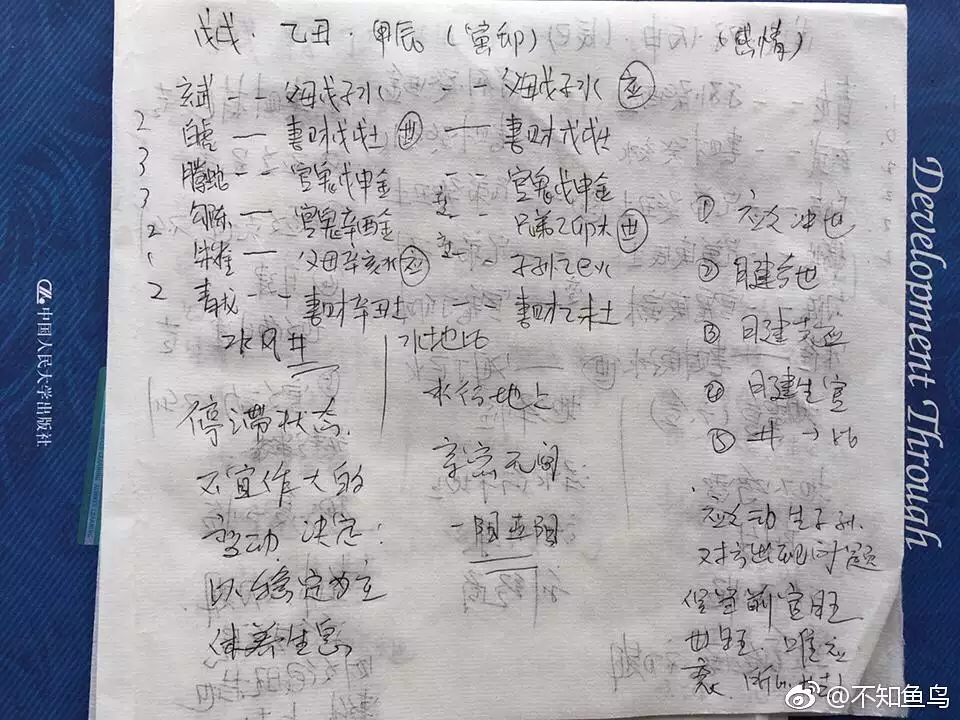 戊戌·乙丑·甲辰(寅卯) (感情)
玄武 -- 父母戊子水 -- 父母戊子水 应
2 白虎 — 妻财戊戌土 世 — 妻财戊戌土
3 腾蛇 -- 官鬼戊申金 -- 官鬼戊申金
3 勾陈 — 官鬼辛酉金 -- 兄弟乙卯木 世
2 朱雀 — 父母辛亥水 应 -- 子孙乙巳火
2 青龙 -- 妻财辛丑土 妻财乙未土
水风井 水地比
停滞状态
不宜作大的
变动 决定:
以稳定为主
休养生息
水行地上
亲密无间
① 应爻冲世
② 日建合世
③ 日建克应
④ 日建生官
⑤ 井→比
应爻动生子孙
对方出现问题
但当前官旺
世旺 唯应
衰
中国人民大学出版社
Development Through
@不知鱼鸟